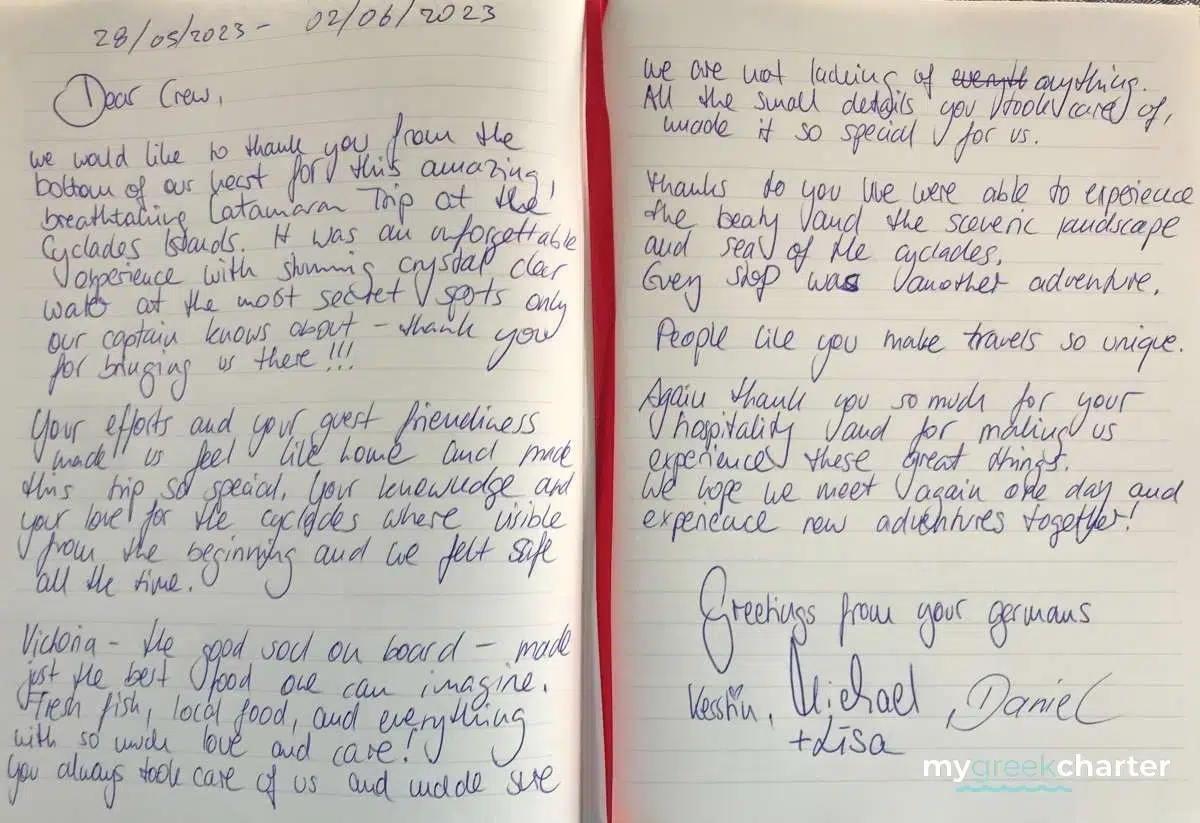 28/05/2023 - 02/06/2023
Dear Crew,
we would like to thank you from the
bottom of our heart for this amazing,
breathtaking Catamaran Trip at the
Cyclades Islands. It was an unforgettable
experience with stunning crystal clear
water at the most secret spots only
our captain knows about - thank you
for bringing us there!!!
Your efforts and your guest friendliness
made us feel like home and made
this trip so special. Your knowledge and
your love for the cyclades where visible
from the beginning and we felt safe
all the time.
Victoria - the good soul on board - made
just the best food one can imagine.
Fresh fish, local food, and everything
with so much love and care!
You always took care of us and made sure
we are not lacking of anything.
All the small details you took care of,
made it so special for us.
Thanks to you we were able to experience
the beaty and the sceneric landscape
and sea of the cyclades.
Every stop was another adventure.
People like you make travels so unique.
Again thank you so much for your
hospitality and for making us
experience these great things.
We hope we meet again one day and
experience new adventures together!
Greetings from your germans
Michael, Daniel
+ Lisa
mygreekcharter